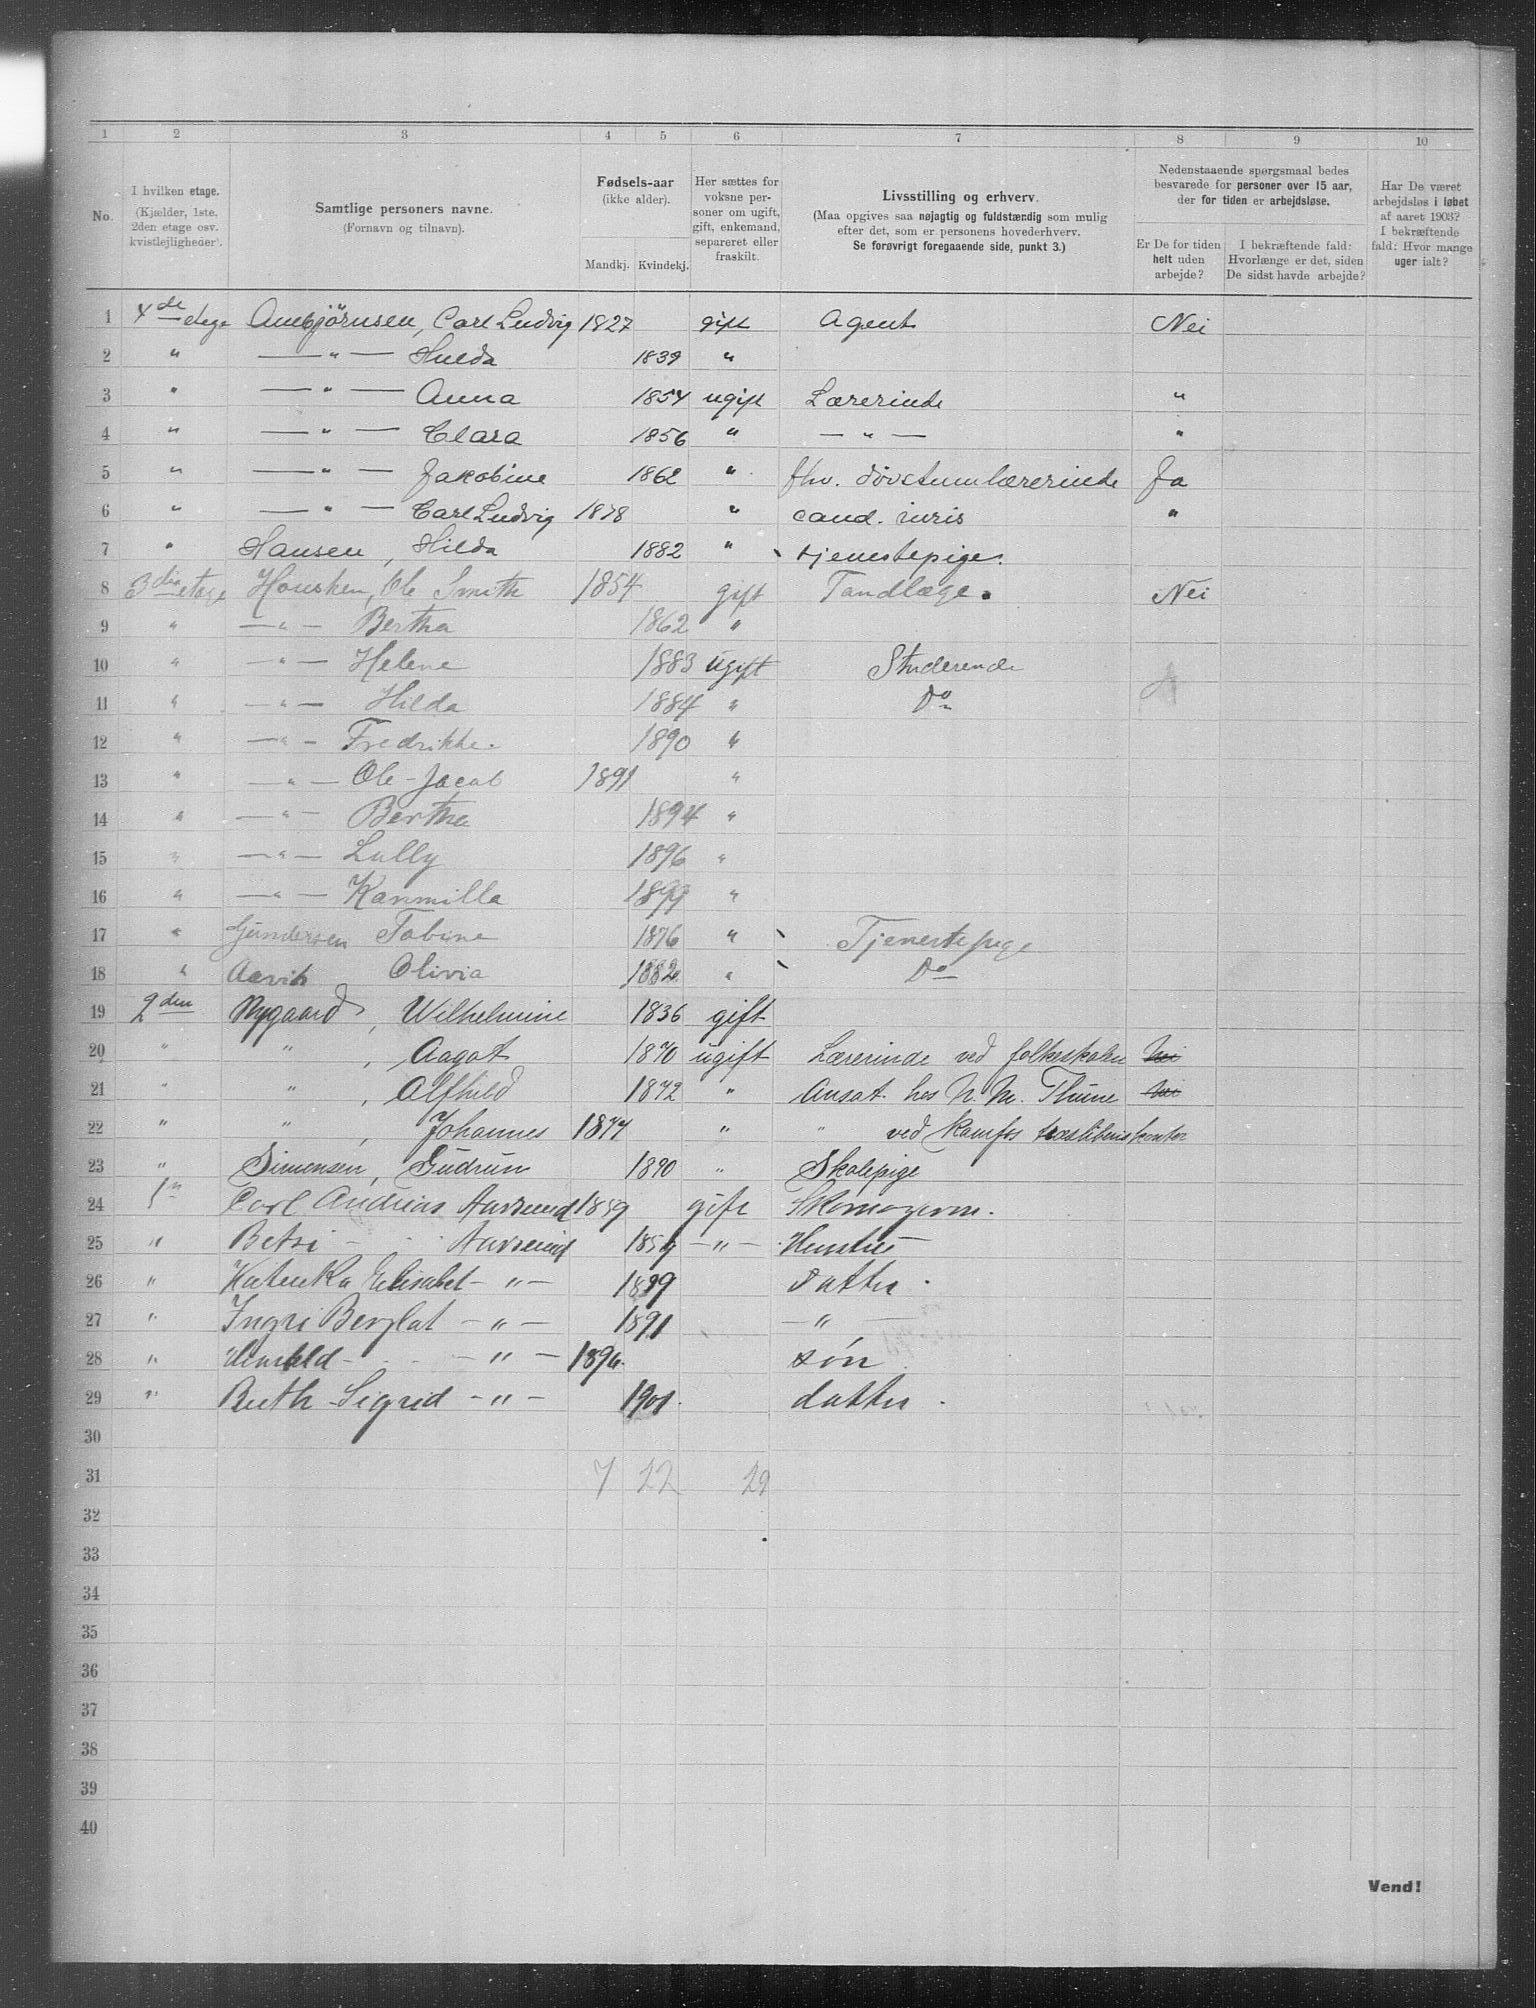 1 2 3 4 5 6 7 8 9 10
No.
I hvilken etage.
(Kjælder, 1ste,
2den etage osv.
kvistlejligheder).
Samtlige personers navne.
(Fornavn og tilnavn).
Fødsels-aar
(ikke alder).
Mandkj. Kvindekj.
Her sættes for
voksne per-
soner om ugift,
gift, enkemand,
separeret eller
fraskilt.
Livsstilling og erhverv.
(Maa opgives saa nøjagtig og fuldstændig som mulig
efter det, som er personens hovederhverv.
Se forøvrigt foregaaende side, punkt 3.)
Nedenstaaende spørgsmaal bedes
besvarede for personer over 15 aar,
der for tiden er arbejdsløse.
Er De for tiden
helt uden
arbejde?
I bekræftende fald:
Hvorlænge er det, siden
De sidst havde arbejde?
Har De været
arbejdsløs i løbet
af aaret 1903?
I bekræftende
fald: Hvor mange
uger ialt?
1 4de etage Ambjörnsen, Carl Ludvig 1827 gift Agent Nei
2 " — " — Hulda 1839 "
3 " — " — Anna 1854 ugift Lærerinde "
4 " — " — Clara 1856 " — " — "
5 " — " — Jakobine 1862 " fhv. døvstumlærerinde Ja
6 " — " — Carl Ludvig 1878 " cand. iuris "
7 " Hansen, Hilda 1882 " tjenestepige.
8 3die etage Housken, Ole Smith 1854 gift Tandlæge. Nei
9 " — " — Bertha 1862 "
10 " — " — Helene 1883 ugift Studerende
11 " — " — Hilda 1884 " Do
12 " — " — Fredrikke. 1890 "
13 " — " — Ole-Jacob 1891 "
14 " — " — Bertha 1894 "
15 " — " — Lully 1896 "
16 " — " — Kanmilla 1899 "
17 " Gundersen Tobine 1876 " Tjenestepige
18 " Aarvik Olivia 1882 " Do
19 2den Nygaard, Wilhelmine 1836 gift
20 " " , Aagot 1870 ugift Lærerinde ved folkeskolen Nei
21 " " , Alfhild 1872 " Ansat hos N. M. Thune Nei
22 " " , Johannes 1877 " " ved Kamfos træsliberis kontor
23 " Simonsen, Gudrun 1890 " Skolepige
24 1n Carl Andreas Aarsrund 1859 gift
25 " Betsi - - - Aarsrund 1859 — " — Hustru
26 " Katinka Elisabet — " — 1889 datter.
27 " Ingri — " — 1891 — " —
28 " — " — 1896. søn
29 " Ruth Sigrid — " — 1901. datter.
30
31 7 22 29
32
33
34
35
36
37
38
39
40
Vend!